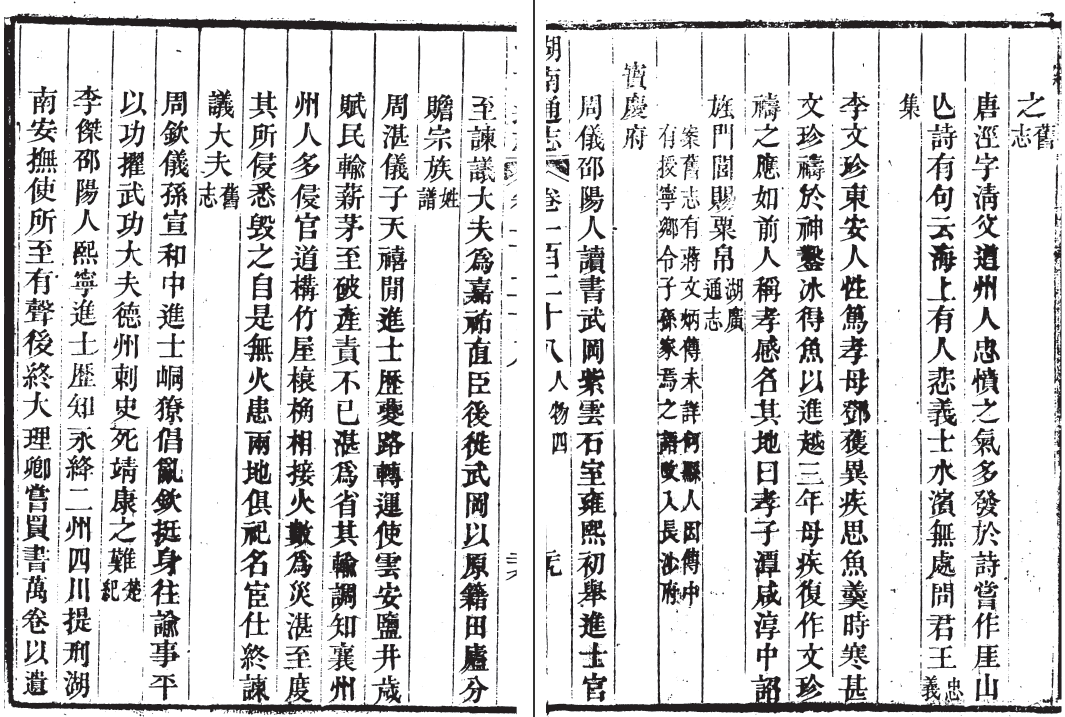 之舊志
唐涇字清父道州人忠憤之氣多發於詩嘗作厓山
亾詩有句云海上有人悲義士水濱無處問君王忠義
集
李文珍東安人性篤孝母鄧獲異疾思魚羹時寒甚
文珍禱於神鑿冰得魚以進越三年母疾復作文珍
禱之應如前人稱孝感名其地曰孝子潭咸淳中詔
旌門閭賜粟帛湖廣通志
案舊志有蔣文炳傳未詳何縣人因傳中
有授寧鄉令子孫家焉之語改入長沙府
寶慶府
周儀邵陽人讀書武岡紫雲石室雍熙初舉進士官
湖南通志 卷一百二十八 人物四
至諫議大夫爲嘉祐直臣後徙武岡以原籍田廬分
贍宗族姓譜
周湛儀子天禧閒進士歷夔路轉運使雲安鹽井歲
賦民輸薪茅至破產責不已湛爲省其輸調知襄州
州人多侵官道構竹屋榱桷相接火數爲災湛至度
其所侵悉毀之自是無火患兩地俱祀名宦仕終諫
議大夫舊志
周欽儀孫宣和中進士峒獠倡亂欽挺身往諭事平
以功擢武功大夫德州刺史死靖康之難楚紀
李傑邵陽人熙寧進士歷知永絳二州四川提刑湖
南安撫使所至有聲後終大理卿嘗買書萬卷以遺